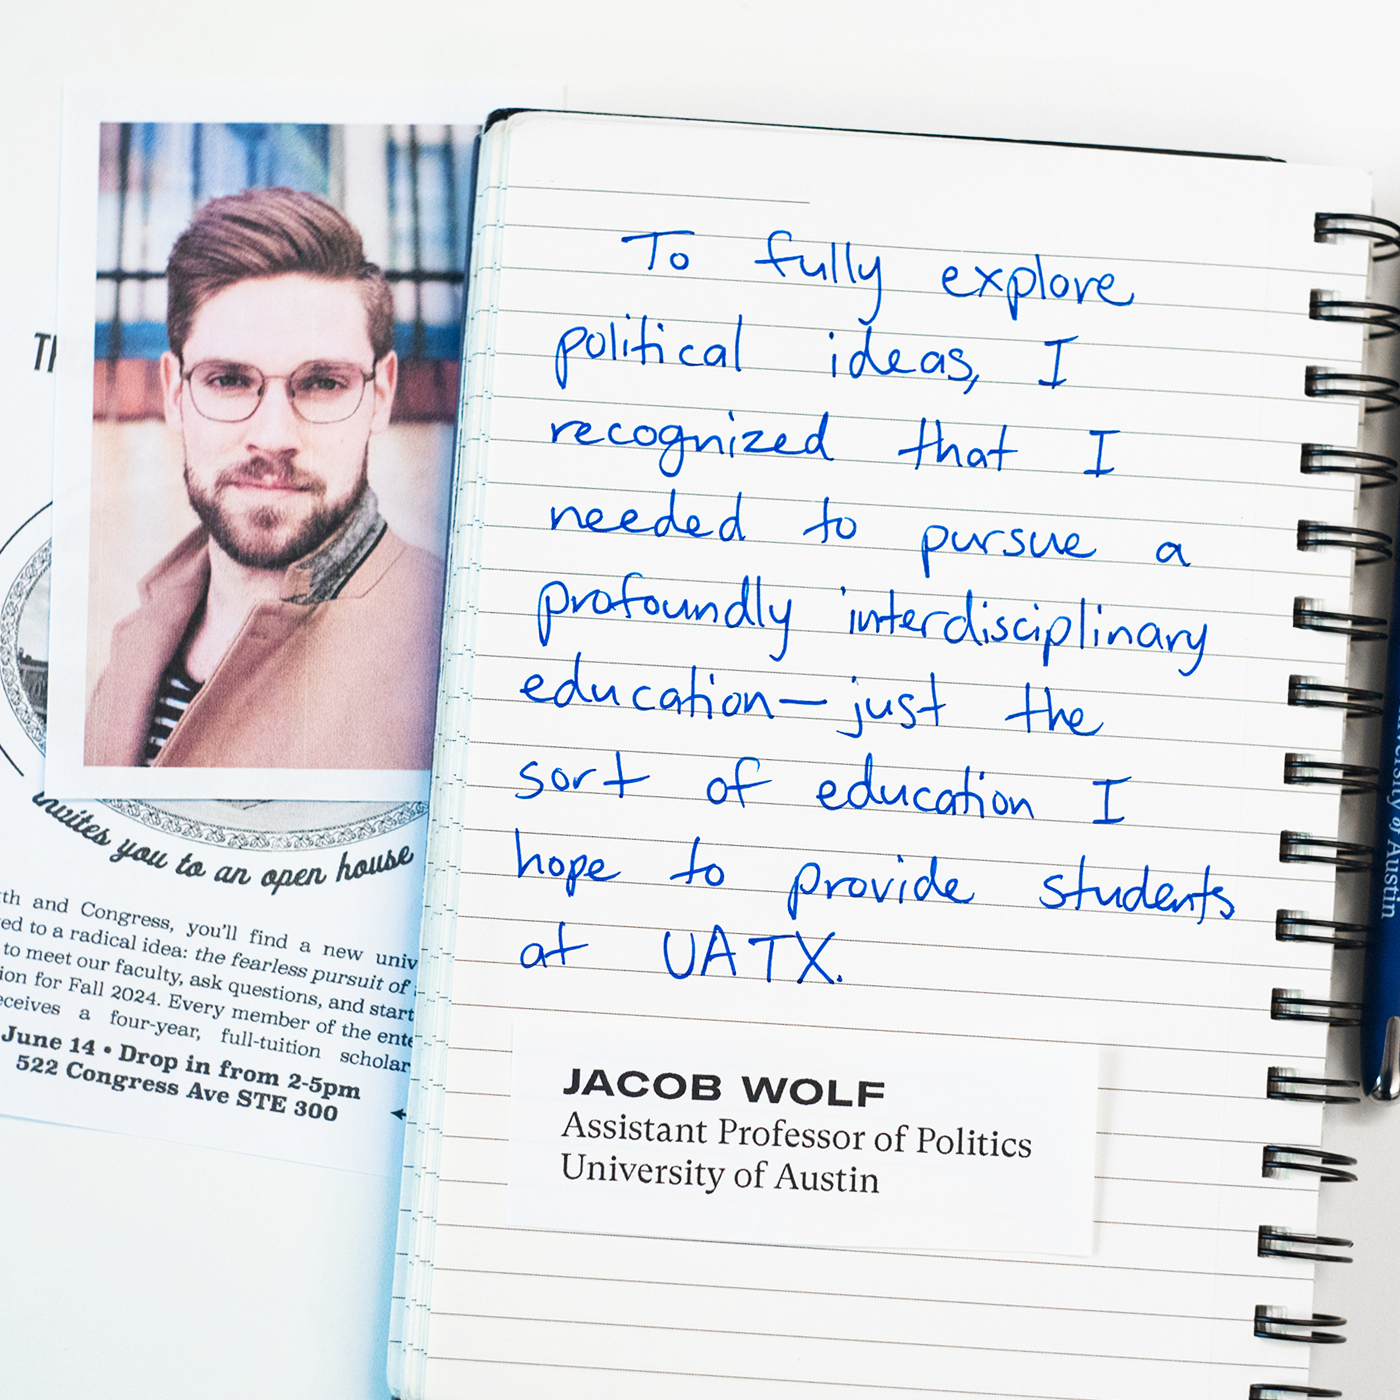 To fully explore
political ideas, I
recognized that I
needed to pursue a
profoundly interdisciplinary
education—just the
sort of education I
hope to provide students
at UATX.
JACOB WOLF
Assistant Professor of Politics
University of Austin
invites you to an open house
th and Congress, you'll find a new univ
ed to a radical idea: the fearless pursuit of
to meet our faculty, ask questions, and start
ion for Fall 2024. Every member of the ente
eceives a four-year, full-tuition scholar
June 14 • Drop in from 2-5pm
522 Congress Ave STE 300
of Austin